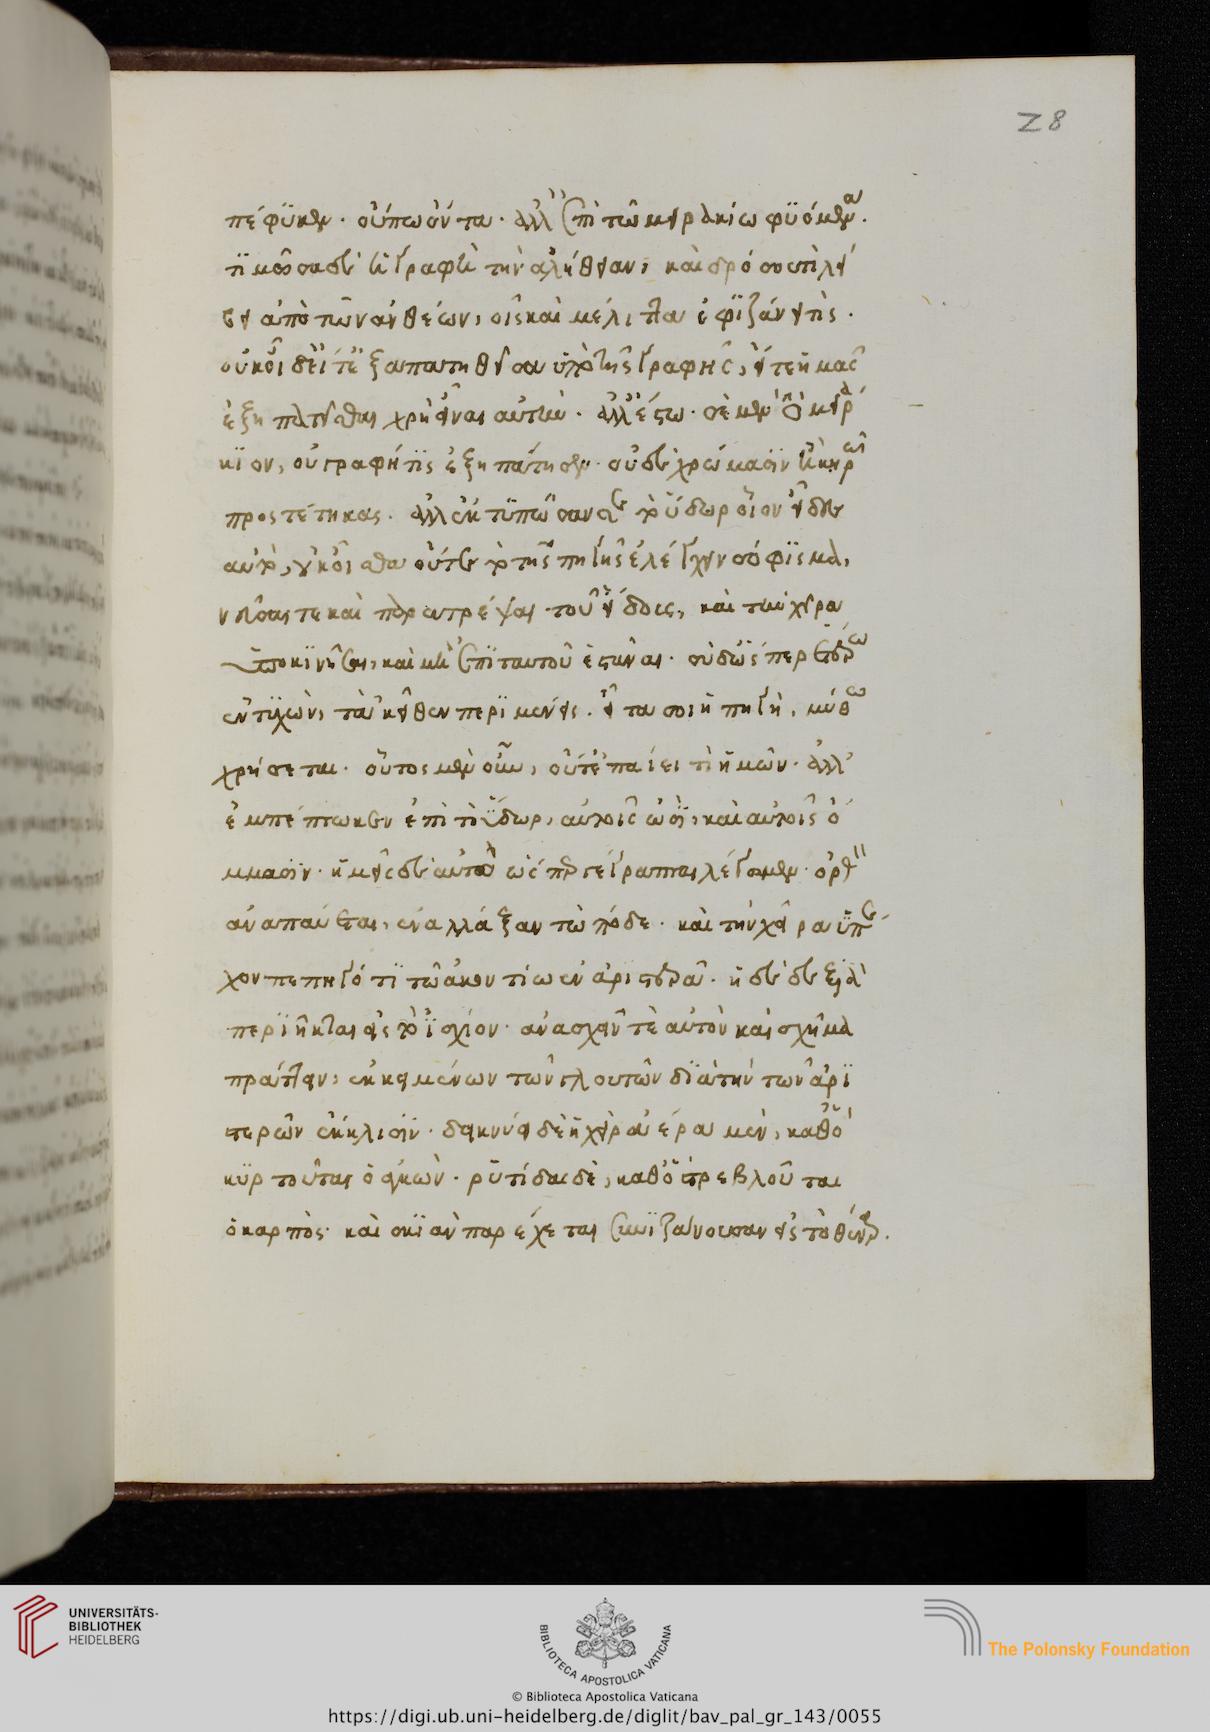 28
πέφυκεν. οὔπω ὄντα. ἀλλ' ἐπὶ τῶ μειρακίω φυόμενα.
τιμῶσα δὲ ἡ γραφὴ τὴν ἀλήθειαν, καὶ δρόσου τι λεί
βει ἀπὸ τῶν ἀνθέων, οἷς καὶ μέλιττα ἐφιζάνει τὶς.
οὐκ οἶδ' εἴτ' ἐξαπατηθεῖσα ὑπὸ τῆς γραφῆς, εἴτε ἡμᾶς
ἐξηπατῆσθαι χρὴ εἶναι αὐτήν. ἀλλ' ἔστω. σὲ μὲν ὦ μειρά
κιον, οὐ γραφή τις ἐξηπάτησεν. οὐδὲ χρώμασιν ἢ κηρῶ
προστέτηκας. ἀλλ' ἐκτυπῶσαν σε τὸ ὕδωρ οἷον εἶδες
αὐτὸ, οὐκ οἶσθα οὔτε τὸ τῆς πηγῆς ἐλέγχειν σόφισμα,
νεῦσαι τε καὶ παρατρέψαι τοῦ εἴδους, καὶ τὴν χεῖρα
ὑποκινῆσαι, καὶ μὴ ἐπὶ ταυτοῦ ἑστάναι. σὺ δ' ὥσπερ ἑταίρω
ἐντυχὼν, τἀκεῖθεν περιμένεις. εἶτα σοι ἡ πηγὴ, μύθω
χρήσεται. οὗτος μὲν οὖν, οὔτ' ἐπαΐει τὶ ἡμῶν. ἀλλ'
ἐμπέπτωκεν ἐπὶ τὸ ὕδωρ, αὐτοῖς ὠσὶ, καὶ αὐτοῖς ὄ
μμασιν. ἡμεῖς δὲ αὐτὰ ὥσπερ γέγραπται λέγωμεν. ὀρθὸν
ἀναπαύεται, ἐναλλάξαν τὼ πόδε. καὶ τὴν χεῖρα ὑπέ
χον πεπηγότι τῶ ἀκοντίω ἐν ἀριστερᾶ. ἡ δὲ δεξιὰ
περιῆκται εἰς τὸ ἰσχίον. ἀνασχεῖν τὲ αὐτὸν καὶ σχῆμα
πράττειν, ἐκκειμένων τῶν γλουτῶν διὰ τὴν τῶν ἀρι
στερῶν ἔκκλισιν. δεικνύει δὲ ἡ χεὶρ ἀέρα μὲν, καθ' ὃ
κυρτοῦται ὁ ἀγκὼν. ῥυτίδα δὲ, καθ' ὃ στρεβλοῦται
ὁ καρπὸς. καὶ σκιὰν παρέχεται ἐνιζάνουσαν εἰς τὸ θέναρ.
UNIVERSITÄTS-
BIBLIOTHEK
HEIDELBERG
BIBLIOTECA APOSTOLICA VATICANA
The Polonsky Foundation
© Biblioteca Apostolica Vaticana
https://digi.ub.uni-heidelberg.de/diglit/bav_pal_gr_143/0055